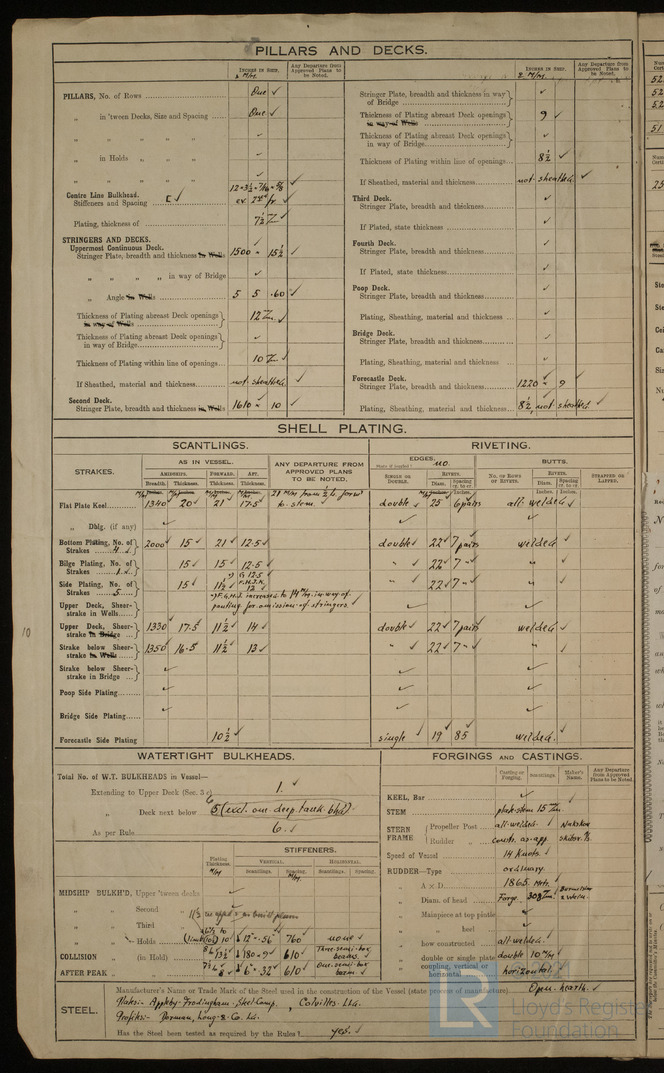 PILLARS AND DECKS.
INCHES IN SHIP.
Any Departure from Approved Plans to be Noted.
PILLARS, No. of Rows One
„ in 'tween Decks, Size and Spacing One
„ „ „ „ „
„ in Holds „ „
„ „ „ „
Centre Line Bulkhead.
Stiffeners and Spacing
Plating, thickness of 7½
STRINGERS AND DECKS.
Uppermost Continuous Deck.
Stringer Plate, breadth and thickness in Wells 1500 15½
„ „ „ „ in way of Bridge
„ Angle in Wells 5 5 .60
Thickness of Plating abreast Deck openings in way of Wells 12
Thickness of Plating abreast Deck openings in way of Bridge
Thickness of Plating within line of openings 10
If Sheathed, material and thickness not sheathed
Second Deck.
Stringer Plate, breadth and thickness in Wells 1610 10
INCHES IN SHIP.
Any Departure from Approved Plans to be Noted.
Stringer Plate, breadth and thickness in way of Bridge
Thickness of Plating abreast Deck openings in way of Wells 9
Thickness of Plating abreast Deck openings in way of Bridge
Thickness of Plating within line of openings 8½
If Sheathed, material and thickness not sheathed
Third Deck.
Stringer Plate, breadth and thickness
If Plated, state thickness
Fourth Deck.
Stringer Plate, breadth and thickness
If Plated, state thickness
Poop Deck.
Stringer Plate, breadth and thickness
Plating, Sheathing, material and thickness
Bridge Deck.
Stringer Plate, breadth and thickness
Plating, Sheathing, material and thickness
Forecastle Deck.
Stringer Plate, breadth and thickness 1220 9
Plating, Sheathing, material and thickness 8½ not sheathed
SHELL PLATING.
SCANTLINGS.
RIVETING.
STRAKES.
AS IN VESSEL.
AMIDSHIPS. FORWARD. AFT.
Breadth. Thickness. Thickness. Thickness.
ANY DEPARTURE FROM APPROVED PLANS TO BE NOTED.
EDGES. no.
State if joggled
SINGLE OR DOUBLE.
RIVETS.
Diam. Spacing cr. to cr.
BUTTS.
NO. OF ROWS OF RIVETS.
RIVETS.
Diam. Spacing cr. to cr.
STRAPPED OR LAPPED.
Flat Plate Keel 1340 20 21 17.5 double 25 6 pairs all welded
„ Dblg. (if any)
Bottom Plating, No. of Strakes 4 2000 15 21 12.5 double 22 7 pairs welded
Bilge Plating, No. of Strakes 1 15 15 12.5 „ 22 7 „ „
Side Plating, No. of Strakes 5 15 11½ „ 22 7 „ „
F.G.H.J. increased to 14 m/m in way of
panting for omission of stringers
Upper Deck, Sheer-strake in Wells
Upper Deck, Sheer-strake in Bridge 1330 17.5 11½ 14 double 22 7 pairs welded
Strake below Sheer-strake in Wells 1350 16.5 11½ 13 „ 22 7 „ „
Strake below Sheer-strake in Bridge
Poop Side Plating
Bridge Side Plating
Forecastle Side Plating 10½ single 19 85 welded.
10
WATERTIGHT BULKHEADS.
Total No. of W.T. BULKHEADS in Vessel—
Extending to Upper Deck (Sec. 3 c) 1.
„ Deck next below 5 (excl. one deep tank bhd)
As per Rule 6.
Plating Thickness.
STIFFENERS.
VERTICAL. HORIZONTAL.
Scantlings. Spacing. Scantlings. Spacing.
MIDSHIP BULKH'D, Upper 'tween decks
„ „ Second „
„ „ Third „
„ „ Holds 10 12" .56" 760 none
COLLISION „ (in Hold) 13½ 180 × 9 610 Three semi-box beams.
AFTER PEAK „ 8 6" .32 610 One semi-box beam
FORGINGS AND CASTINGS.
Casting or Forging. Scantlings. Maker's Name. Any Departure from Approved Plans to be Noted.
KEEL, Bar
STEM plate stem 15
STERN FRAME
Propeller Post all-welded. Nakskov
Rudder „ constr. as app. skibsv.
Speed of Vessel 14 Knots
RUDDER—Type ordinary
„ A × D 1865
„ Diam. of head Forge. 303
„ Mainpiece at top pintle
„ „ heel
„ how constructed all-welded.
„ double or single plate double 10 m/m
„ coupling, vertical or horizontal horizontal.
STEEL.
Manufacturer's Name or Trade Mark of the Steel used in the construction of the Vessel (state process of manufacture) Open hearth.
Plates:- Appleby-Frodingham, Steel Comp., Colvilles Ltd.
Profiles:- Dorman, Long & Co. Ltd.
Has the Steel been tested as required by the Rules? yes.
LR
Lloyd's Register
Foundation